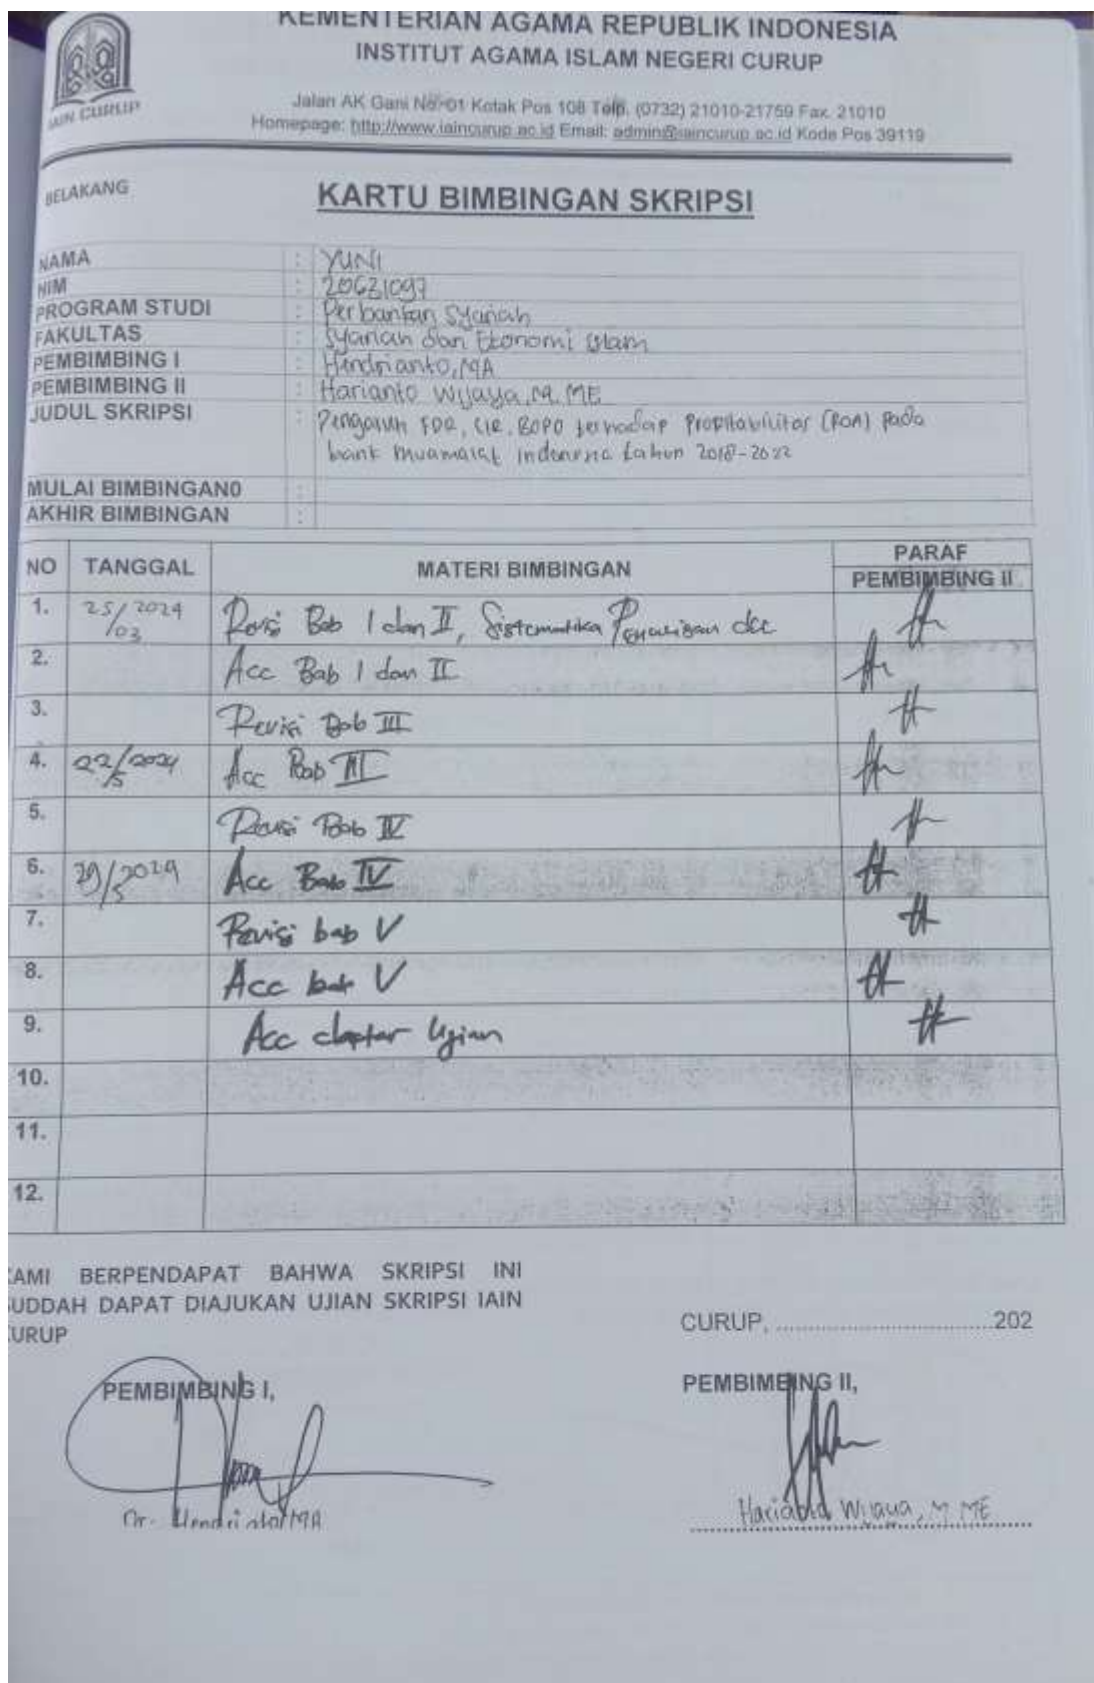 KEMENTERIAN AGAMA REPUBLIK INDONESIA
INSTITUT AGAMA ISLAM NEGERI CURUP
IAIN CURUP
Jalan AK Gani No. 01 Kotak Pos 108 Telp. (0732) 21010-21759 Fax. 21010
Homepage: http://www.iaincurup.ac.id Email: admin@iaincurup.ac.id Kode Pos 39119
BELAKANG
KARTU BIMBINGAN SKRIPSI
NAMA : YUNI
NIM : 20631097
PROGRAM STUDI : Perbankan Syariah
FAKULTAS : Syariah dan Ekonomi Islam
PEMBIMBING I : Hendrianto, MA
PEMBIMBING II : Harianto Wijaya, M. ME
JUDUL SKRIPSI : Pengaruh FDR, CIR, BOPO terhadap Profitabilitas (ROA) Pada
bank Muamalat indonesia tahun 2018-2022
MULAI BIMBINGAN0 :
AKHIR BIMBINGAN :
NO TANGGAL MATERI BIMBINGAN PARAF
PEMBIMBING II
1. 25/03 2024 Revisi Bab I dan II, Sistematika Penulisan dll
2. Acc Bab I dan II
3. Revisi Bab III
4. 22/5 2024 Acc Bab III
5. Revisi Bab IV
6. 29/5 2024 Acc Bab IV
7. Revisi bab V
8. Acc bab V
9. Acc daftar Ujian
10.
11.
12.
KAMI BERPENDAPAT BAHWA SKRIPSI INI
SUDDAH DAPAT DIAJUKAN UJIAN SKRIPSI IAIN
CURUP
CURUP, ....................................202
PEMBIMBING I,
PEMBIMBING II,
Dr. Hendrianto, MA
Harianto Wijaya, M ME